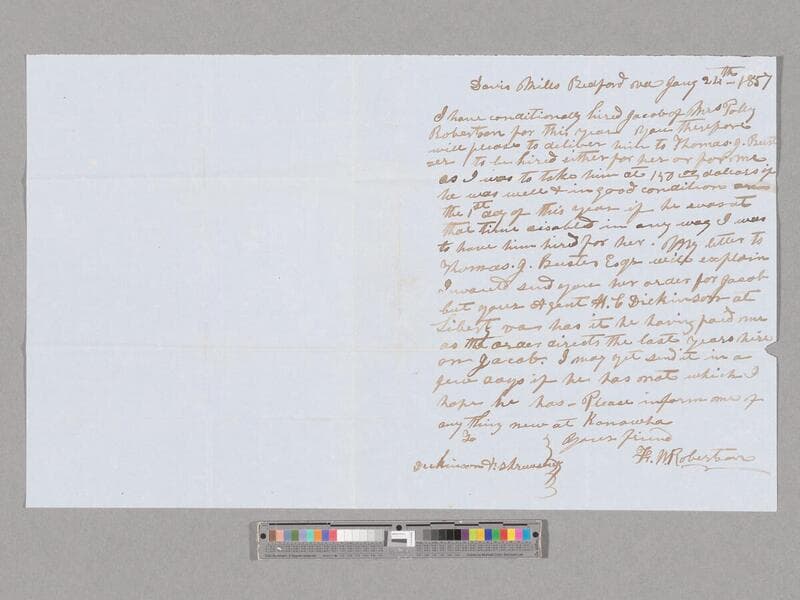 Davis Mills Bedford va Jany 24th 1857
I have conditionally hired Jacob of Mrs Polly
Robertson for this year you therefore
will please to deliver him to Thomas. J. Bust
er to be hired either for her or for me
as I was to take him at 150 dollars if
he was well & in good condition on
the 1st day of this year if he was at
that time disabled in any way I was
to have him hird for her. My letter to
Thomas. J. Buster Esqr will explain
I would send you her order for Jacob
but your Agent H. C Dickinson at
Liberty va has it he having paid me
as the order directs the last years hire
on Jacob. I may get send it in a
few days if he has not which I
hope he has - Please inform me of
any thing new at Kanawha
To } Your friend
Dickinson & Shrewsbury W. Robertson